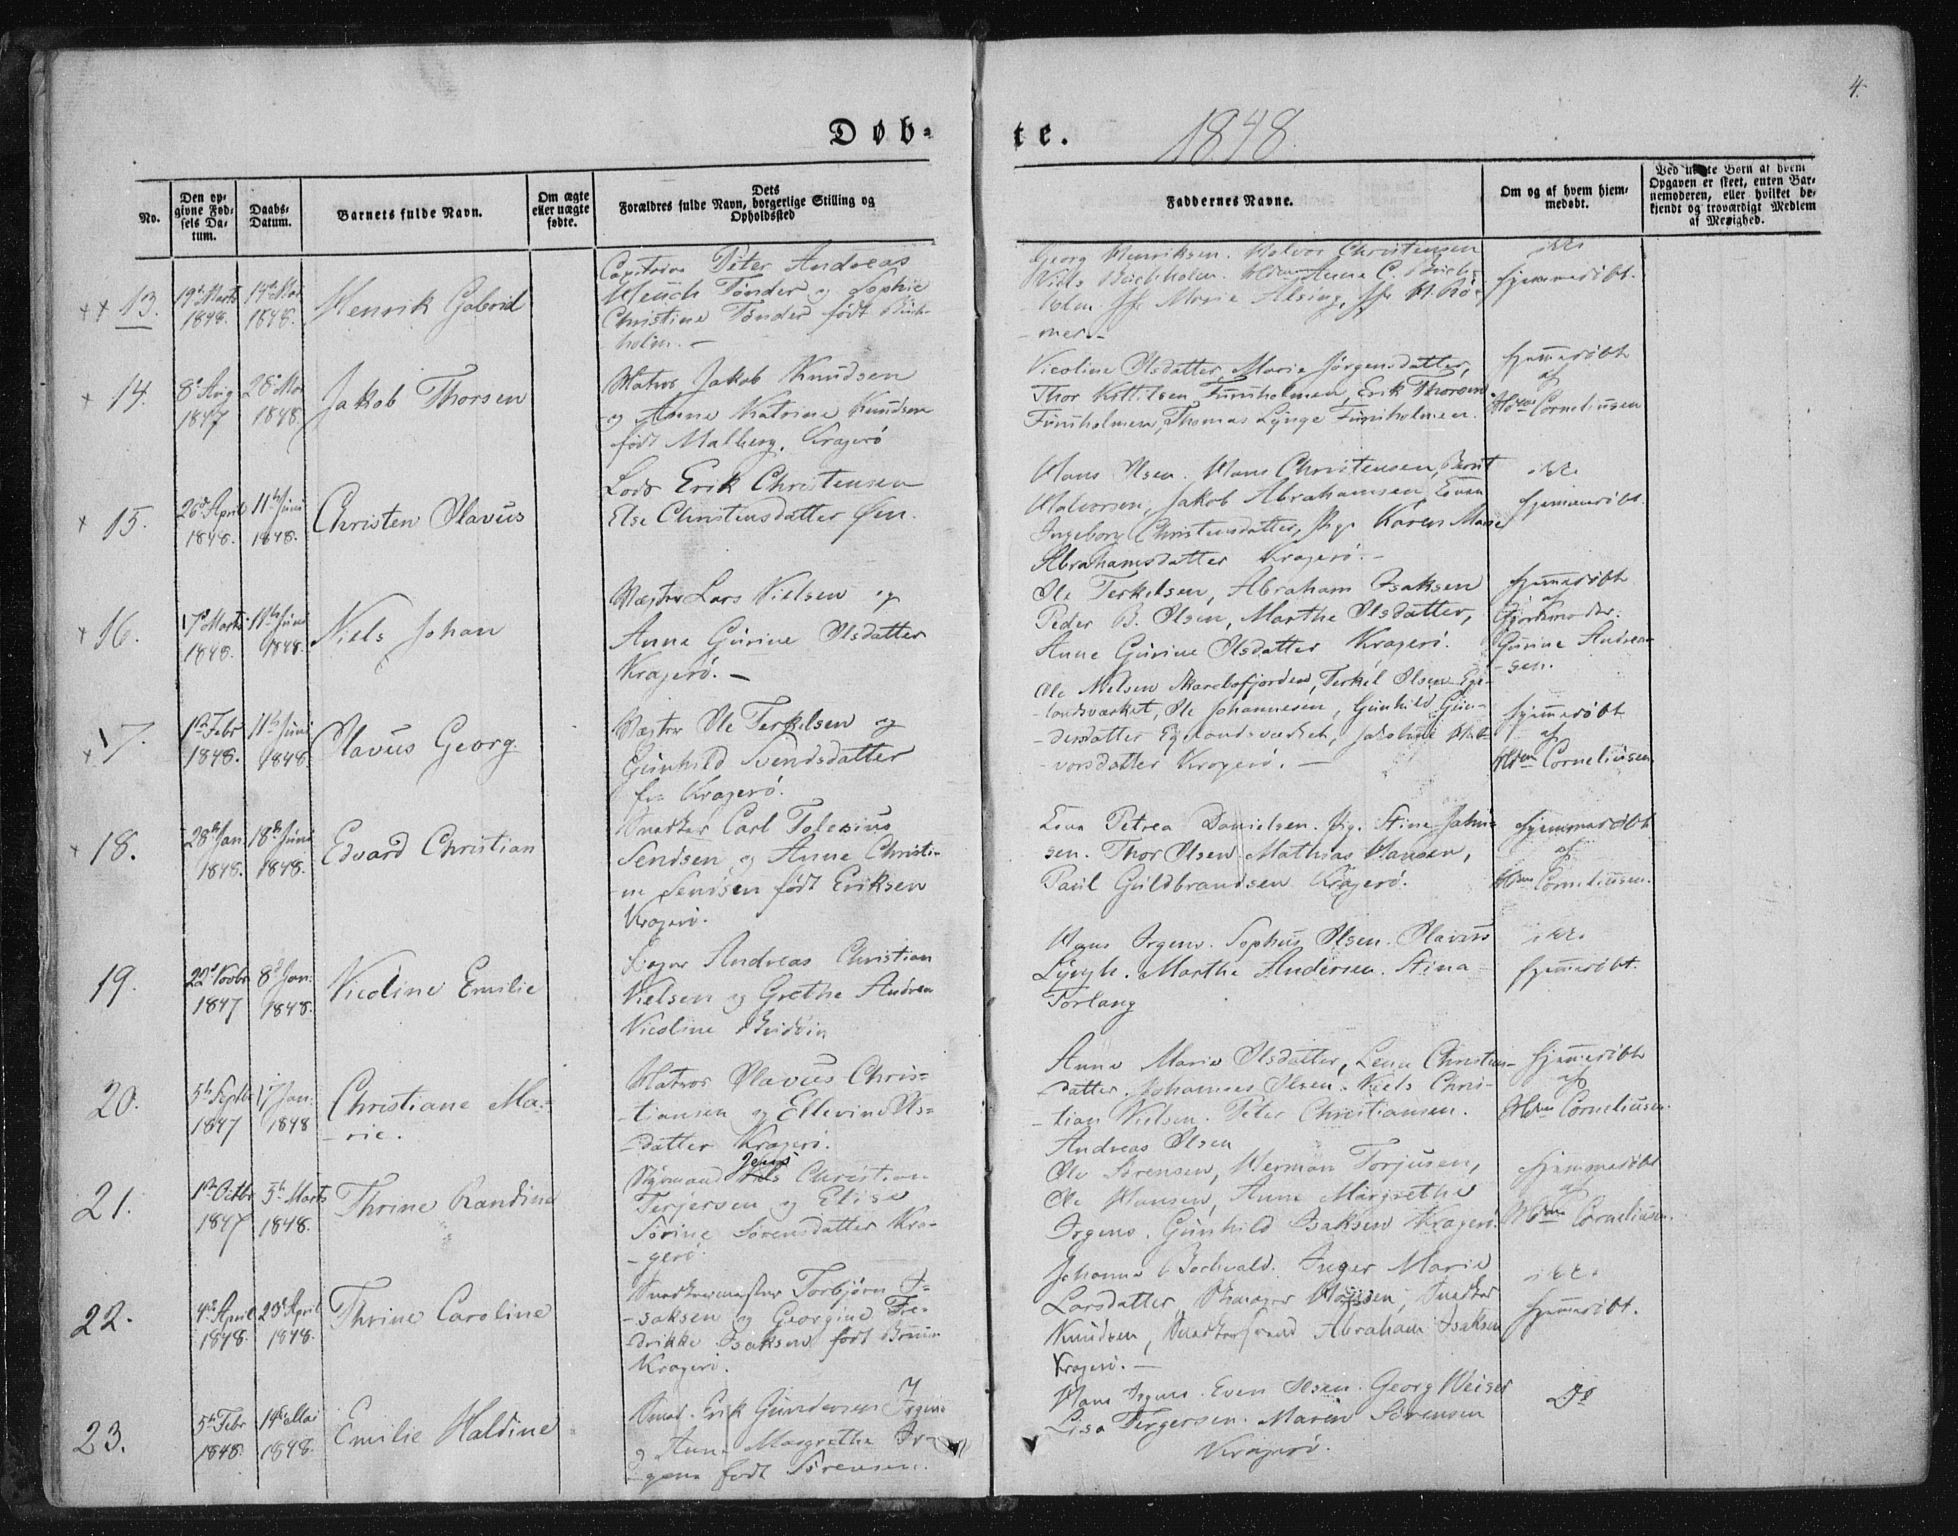 4.
Døb-
te.
1848.
No.
Den op-
givne Fød-
sels Da-
tum.
Daabs-
Datum.
Barnets fulde Navn.
Om ægte
eller uægte
fødte.
Dets
Forældres fulde Navn, borgerlige Stilling og
Opholdssted
Faddernes Navne.
Om og af hvem hjem-
medøbt.
Ved uægte Børn af hvem
Opgaven er skeet, enten Bar-
nemoderen, eller hvilket be-
kjendt og troværdigt Medlem
af Menighed.
13.
19d Marts
1848.
14d Mai
1848.
Henrik Gabriel
Peter Andreas
Heuch Tønder og Sophie
Christine Tønder født Buch-
holm. -
Georg Henriksen. Halvor Christensen
Niels Buchholm. Anna C. Buch-
holm. Jfr Marie Alsing, Jfr
ikke
hjemmedøbt.
14.
8d Aug
1847
28d Mai
1848.
Jakob Thorsen
Matros Jakob Knudsen
og Anne Katrine Knudsen
født Malberg. Kragerö
Nicoline Olsdatter, Marie Jörgensdatter,
Thor Kittilsen Furuholmen, Erik Thorsen
Furuholmen, Thomas Lÿnge Furuholmen.
hjemmedøbt
af
Corneliusen
15.
26d April
1848.
11th Juni
1848.
Christen Olavus
Lods Erik Christensen
Else Christensdatter Øen.
Hans Olsen. Hans Christensen, Berit
Halvorsen, Jakob Abrahamsen,
Ingeborg Christensdatter, Pig. Karen Marie
Abrahamsdatter Kragerö. -
ikke
hjemmedøbt.
16.
17d Marts
1848.
11th Juni
1848.
Niels Johan
Lars Nielsen og
Anne Gurine Olsdatter
Kragerö. -
Ole Terkelsen, Abraham Isaksen
Peder B. Olsen, Marthe Olsdatter,
Anne Gurine Olsdatter Kragerö.
hjemmedøbt
af
Gjordemoder
Gurine Andrea-
sen.
17.
1ste Febr
1848.
11th Juni
1848
Olavus Georg.
Ole Terkelsen og
Gunhild Svendsdatter
Kragerö.
Ole Nielsen, Terkel Olsen Ege-
landsværket, Ole Johannesen, Gunhild Gun-
dersdatter Egelandsværket, Jakobine Hal-
vorsdatter Kragerö. -
hjemmedøbt
af
Corneliusen
18.
28th Jan
1848.
18th Juni
1848.
Edvard Christian
Snedker Carl Tolenius
Sendsen og Anne Christi-
ne Sendsen født Eriksen
Kragerö.
Petrea Danielsen. Pig. Stine John-
sen. Thor Olsen Mathias Hansen,
Paul Guldbrandsen Kragerö.
hjemmedøbt
af
Corneliusen.
19.
22d Novbr
1847
8d Jan:
1848.
Nicoline Emilie
Andreas Christian
Nielsen og Grethe Andrea
Nicoline
Hans Irgens. Sophus Olsen. Olavus
Lÿngh. Marthe Andersen. Stina
Torlang
ikke
hjemmedøbt.
20.
5th Septbr
1847
17 Jan:
1848
Christiane Ma-
rie.
Matros Olavus Chris-
tiansen og Ellevine Ols-
datter Kragerö.
Anne Marie Olsdatter, Lena Christens-
datter. Johannes Olsen. Niels Chris-
tian Nielsen. Peter Christiansen.
Andreas Olsen
hjemmedøbt
af
Corneliusen
21.
1ste Octbr
1847
5th Marts
1848.
Thrine Randine
Jens
Styrmand Christian
Terjersen og Elise
Sörine Sörensdatter Kra-
gerö.
Ole Sörensen, Herman Torjusen,
Ole Hansen, Anne Margrethe
Irgens. Gunhild Isaksen Kragerö.
hjemmedøbt
af
Corneliusen.
22.
4de April
1848.
23d April
1848.
Thrine Caroline
Snedkermester Torbjørn I-
saksen og Georgine Fre-
drikke Isaksen født Bruun
Kragerö.
Johanne Bochvald. Inger Marie
Larsdatter, Snedker
Knudsen, Abraham Isaksen
Kragerö. -
ikke
hjemmedøbt.
23.
5th Febr
1848.
14d Mai
1848.
Emilie Haldine
Erik Gundersen Irgens
og Anne Margrethe Ir-
gens født Sörensen.
Hans Irgens. Even Olsen. Georg Weiser
Lisa Tergersen. Maren Sörensen
Kragerö.
Do